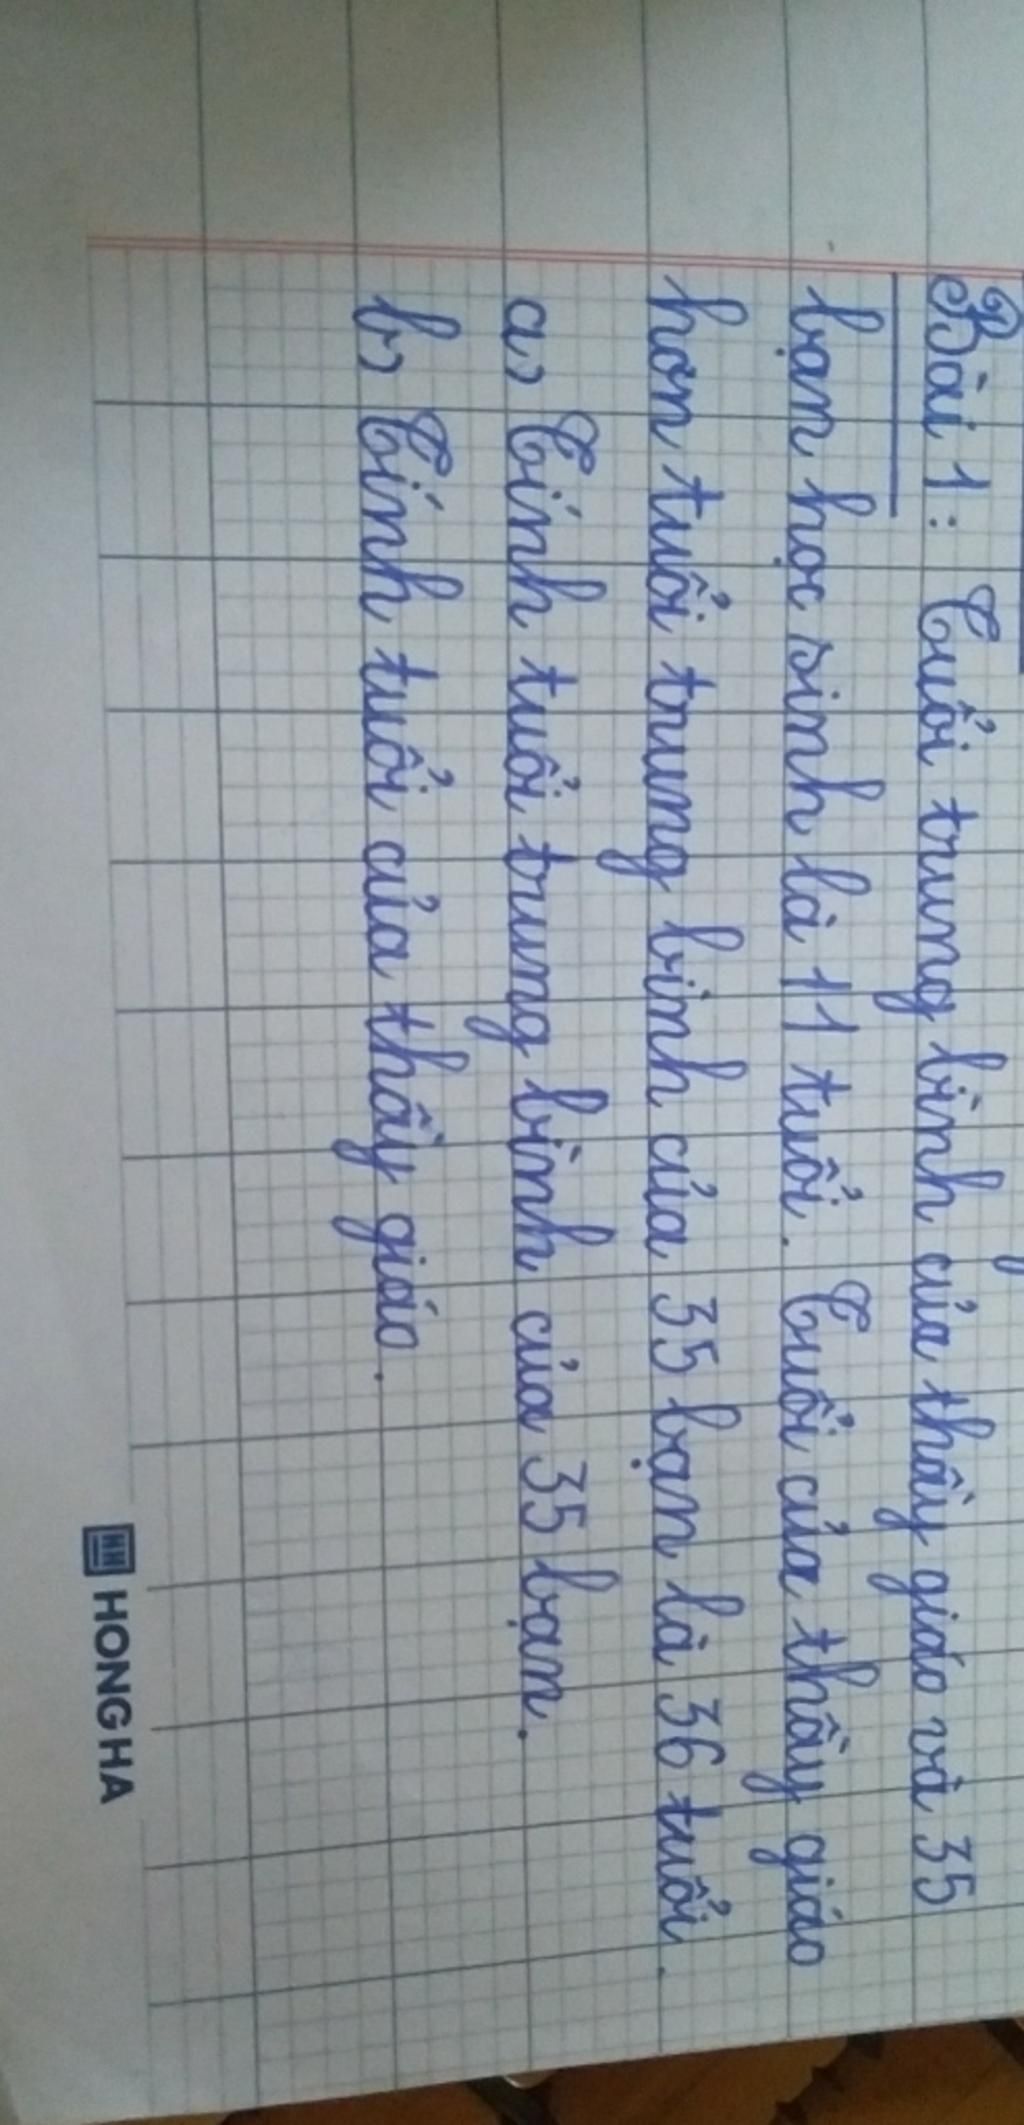 Bài 1: Tuổi trung bình của thầy giáo và 35
bạn học sinh là 11 tuổi. Tuổi của thầy giáo
hơn tuổi trung bình của 35 bạn là 36 tuổi.
a) Tính tuổi trung bình của 35 bạn.
b) Tính tuổi của thầy giáo.
HH HONG HA